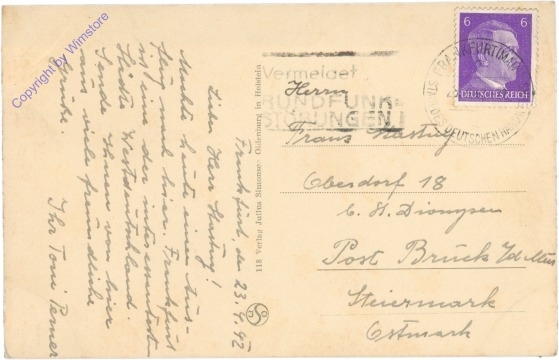 Copyright by Wimstore
Frankfurt, den 23.4.42
Lieber Herr Hastig!
Machte heute einen Aus-
flug nach hier. Frankfurt
ist eine der interessantesten
Städte Westdeutschland.
Sende Ihnen von hier
aus viele freundliche
Grüße.
Ihr Toni
118 Verlag Julius Simonsen Oldenburg in Holstein
Vermeidet
RUNDFUNK-
STÖRUNGEN!
FRANKFURT (MAIN)
DES DEUTSCHEN
6 6
DEUTSCHES REICH
Herrn
Franz Hastig
Oberdorf 18
b. St. Dionysen
Post Bruck a/d Mur
Steiermark
Ostmark